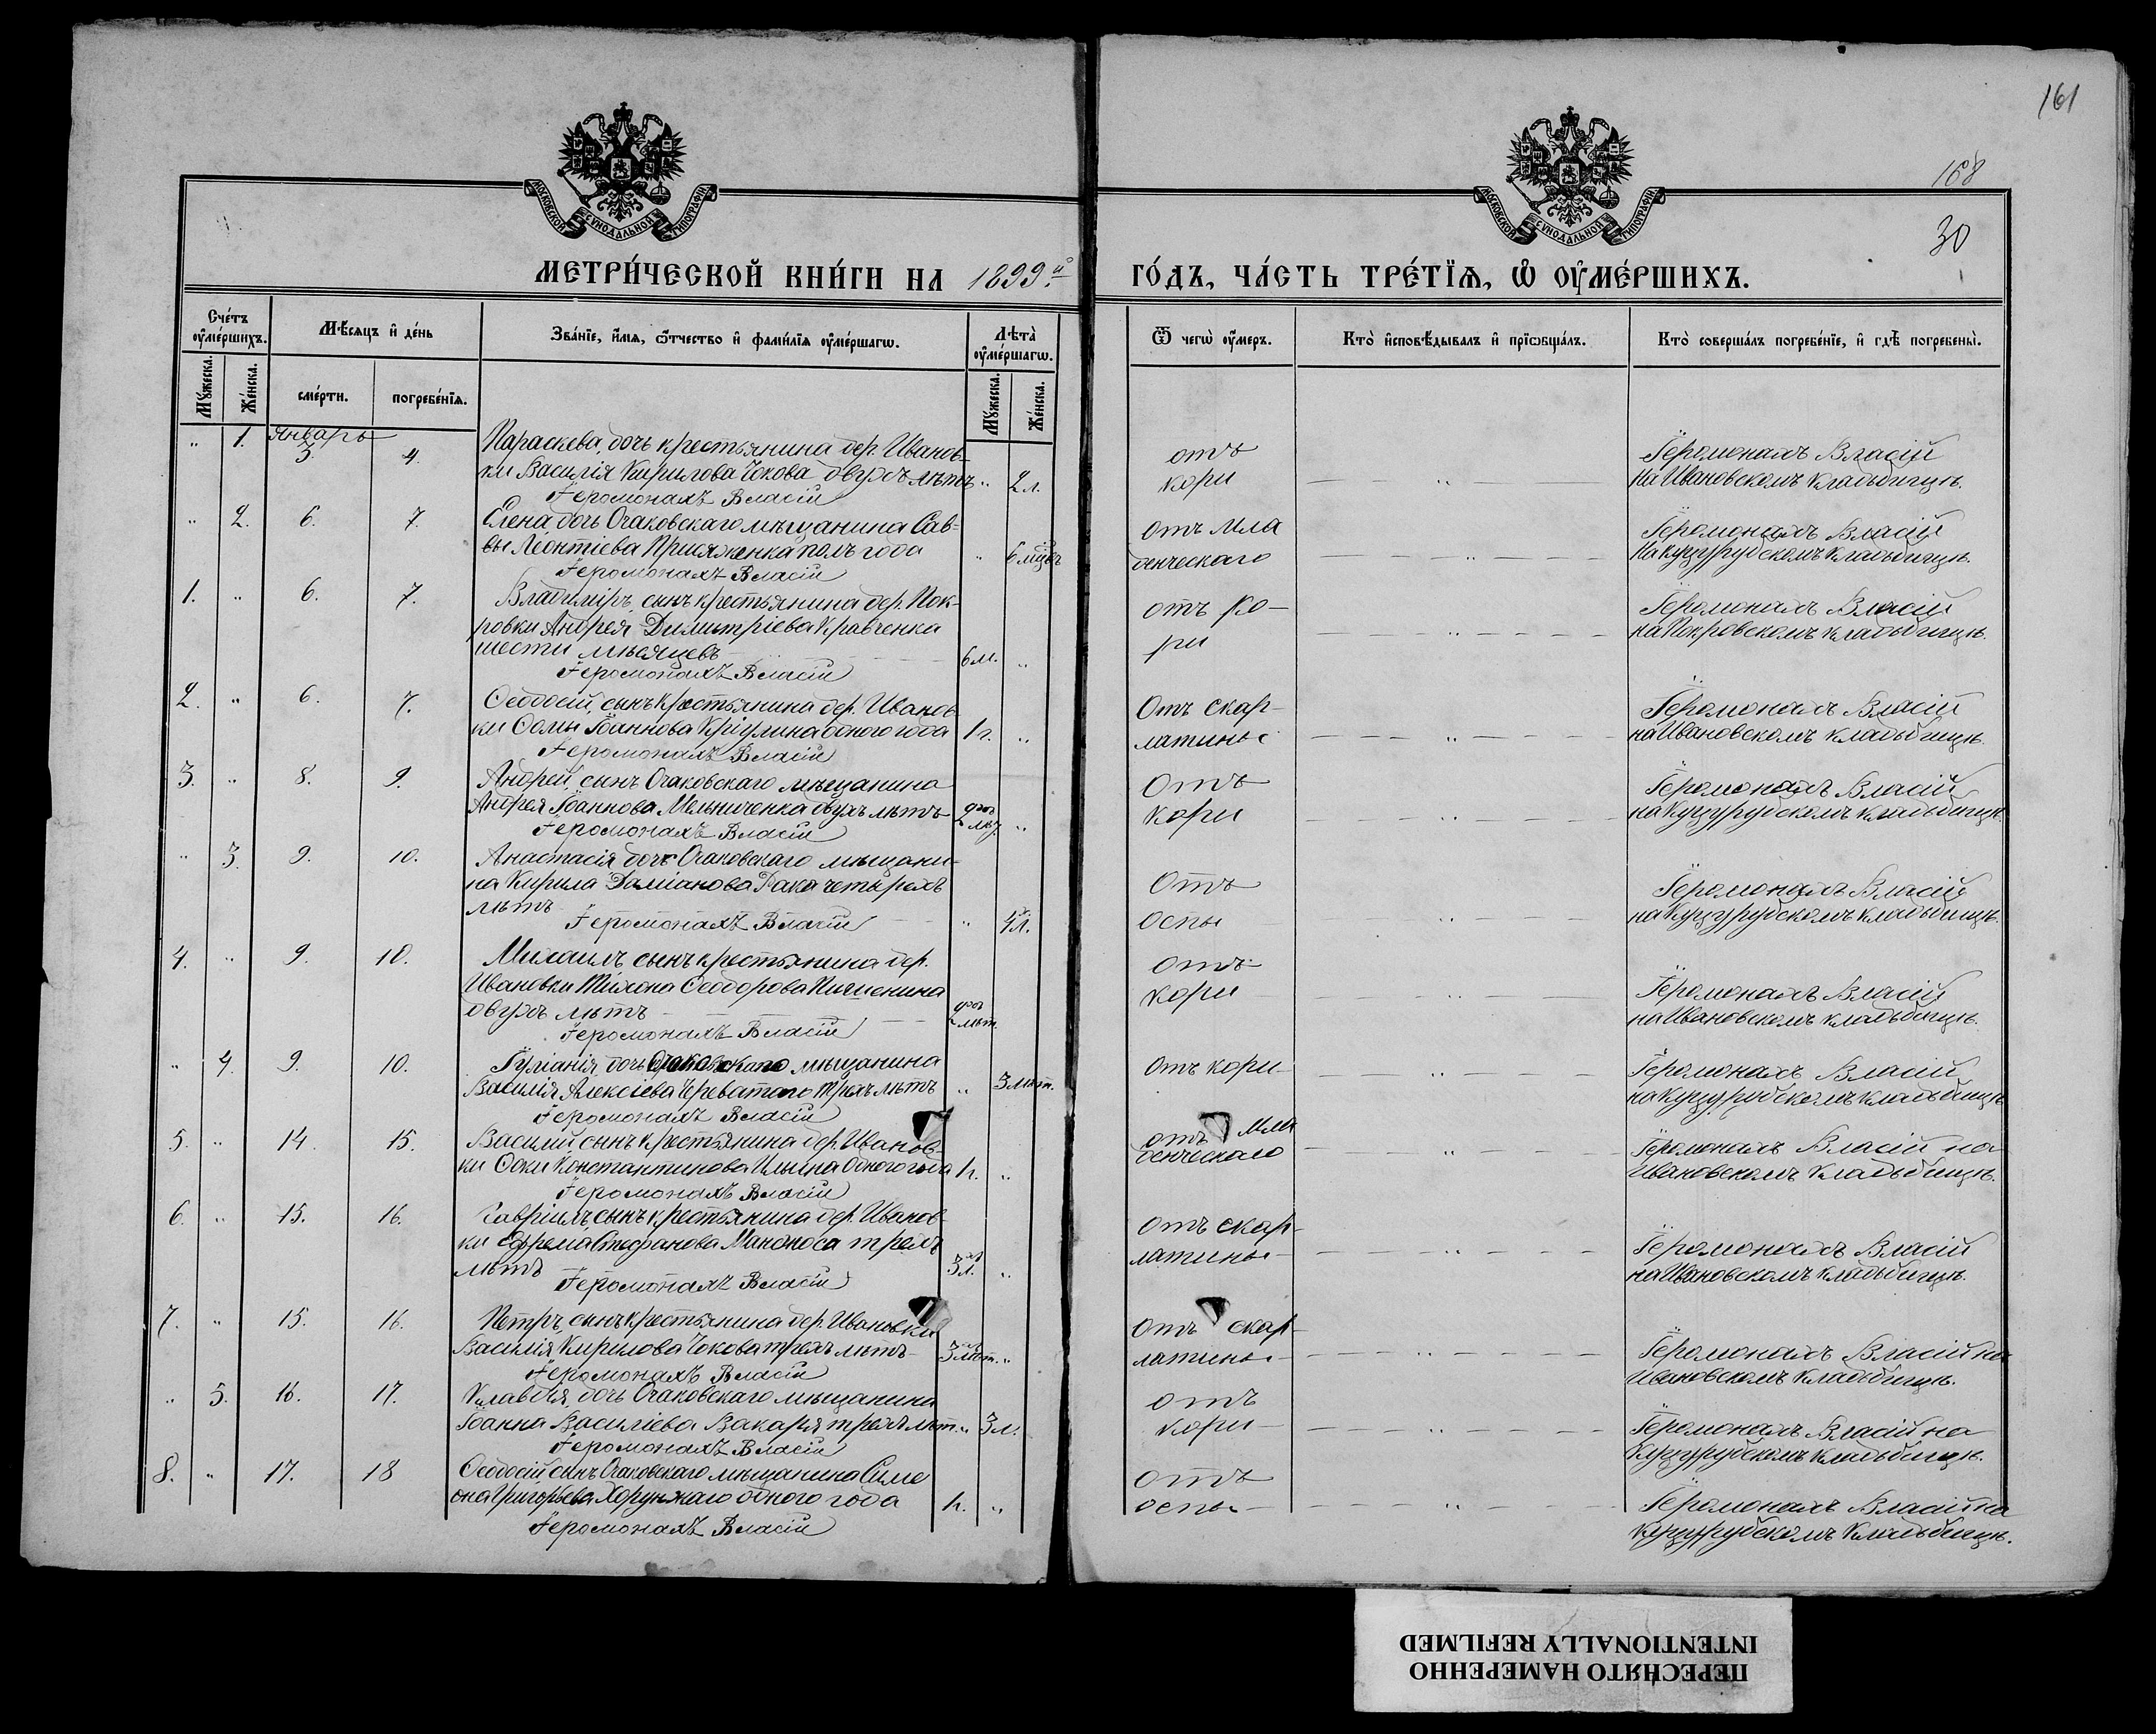 161
168
30
МОСКОВСКОЙ СѴНОДАЛЬНОЙ ТИПОГРАФІИ
МОСКОВСКОЙ СѴНОДАЛЬНОЙ ТИПОГРАФІИ
МЕТРИ́ЧЕСКОЙ КНИ́ГИ НА 1899й
ГО́ДЪ, ЧА́СТЬ ТРЕ́ТЇѦ, Ѡ҆ ОУ҆МЕ́РШИХЪ.
Сче́тъ оу҆ме́ршихъ.
Мꙋ́жеска.
Же́нска.
Мѣ́сяцъ и҆ де́нь
сме́рти.
погребе́нїѧ.
Зва́нїе, и҆́мѧ, ѻ҆́тчество и҆ фами́лїѧ оу҆ме́ршагѡ.
Лѣта̀ оу҆ме́ршагѡ.
Мꙋ́жеска.
Же́нска.
Ѿ чегѡ̀ оу҆́меръ.
Кто̀ и҆сповѣ́дывалъ и҆ прїѡбща́лъ.
Кто̀ соверша́лъ погребе́нїе, и҆ гдѣ̀ погребены̀.
Январь
„ 1. 3. 4. Параскева, дочь крестьянина дер. Иванов-
ки Василія Кирилова Чокова двухъ лѣтъ „ 2 л.
Іеромонахъ Власій
отъ
кори
Іеромонахъ Власій
на Ивановскомъ кладбищѣ.
„ 2. 6. 7. Елена дочь Очаковскаго мѣщанина Сав-
вы Леонтіева Присяженка полъ года „ 6 мцвъ
Іеромонахъ Власій
отъ мла
денческаго
Іеромонахъ Власій
на Куцурубскомъ кладбищѣ.
1. „ 6. 7. Владиміръ, сынъ крестьянина дер. Пок-
ровки Андрея Димитріева Кравченка
шести мѣсяцевъ 6 м. „
Іеромонахъ Власій
отъ ко-
ри
Іеромонахъ Власій
на Покровскомъ кладбищѣ.
2. „ 6. 7. Ѳеодосій, сынъ крестьянина дер. Иванов
ки Ѳомы Іоаннова Кріулина одного года 1 г. „
Іеромонахъ Власій
Отъ скар-
латины
Іеромонахъ Власій
на Ивановскомъ кладбищѣ.
3. „ 8. 9. Андрей, сынъ Очаковскаго мѣщанина
Андрея Іоаннова Мельниченка двухъ лѣтъ „
Іеромонахъ Власій
Отъ
кори
Іеромонахъ Власій
на Куцурубскомъ кладбищѣ.
„ 3. 9. 10. Анастасія дочь Очаковскаго мѣщани-
на Кирила Даміанова Рака четырехъ
лѣтъ „ 4 л.
Іеромонахъ Власій
Отъ
оспы
Іеромонахъ Власій
на Куцурубскомъ кладбищѣ.
4. „ 9. 10. Михаилъ сынъ крестьянина дер.
Ивановки Тихона Ѳеодорова
двухъ лѣтъ 2 лѣт.
Іеромонахъ Власій
Отъ
кори
Іеромонахъ Власій
на Ивановскомъ кладбищѣ.
„ 4. 9. 10. Іуліанія дочь Очаковскаго мѣщанина
Василія Алексіева Череватаго трехъ лѣтъ „ 3 лѣт.
Іеромонахъ Власій
Отъ кори
Іеромонахъ Власій
на Куцурубскомъ кладбищѣ
5. „ 14. 15. Василій, сынъ крестьянина дер. Иванов-
ки Ѳоки Константинова Ильина одного года 1 г. „
Іеромонахъ Власій
отъ мла
денческаго
Іеромонахъ Власій на
Ивановскомъ кладбищѣ.
6. „ 15. 16. Гавріилъ, сынъ крестьянина дер. Иванов-
ки Ефрема Стефанова Маноноса трехъ
лѣтъ 3 л. „
Іеромонахъ Власій
отъ скар-
латины
Іеромонахъ Власій
на Ивановскомъ кладбищѣ.
7. „ 15. 16. Петръ, сынъ крестьянина дер. Ивановки
Василія Кирилова Чокова трехъ лѣтъ 3 лѣт. „
Іеромонахъ Власій
отъ скар-
латины
Іеромонахъ Власій на
Ивановскомъ кладбищѣ.
„ 5. 16. 17. Клавдія, дочь Очаковскаго мѣщанина
Іоанна Василіева Вакаря трехъ лѣт. „ 3 л.
Іеромонахъ Власій
отъ
кори
Іеромонахъ Власій на
Куцурубскомъ кладбищѣ.
8. „ 17. 18 Ѳеодосій сынъ Очаковскаго мѣщанина Симе
она Григорьева Хорунжаго одного года 1 г. „
Іеромонахъ Власій
Отъ
оспы
Іеромонахъ Власій на
Куцурубскомъ кладбищѣ.
ПЕРЕСНЯТО НАМЕРЕННО
INTENTIONALLY REFILMED